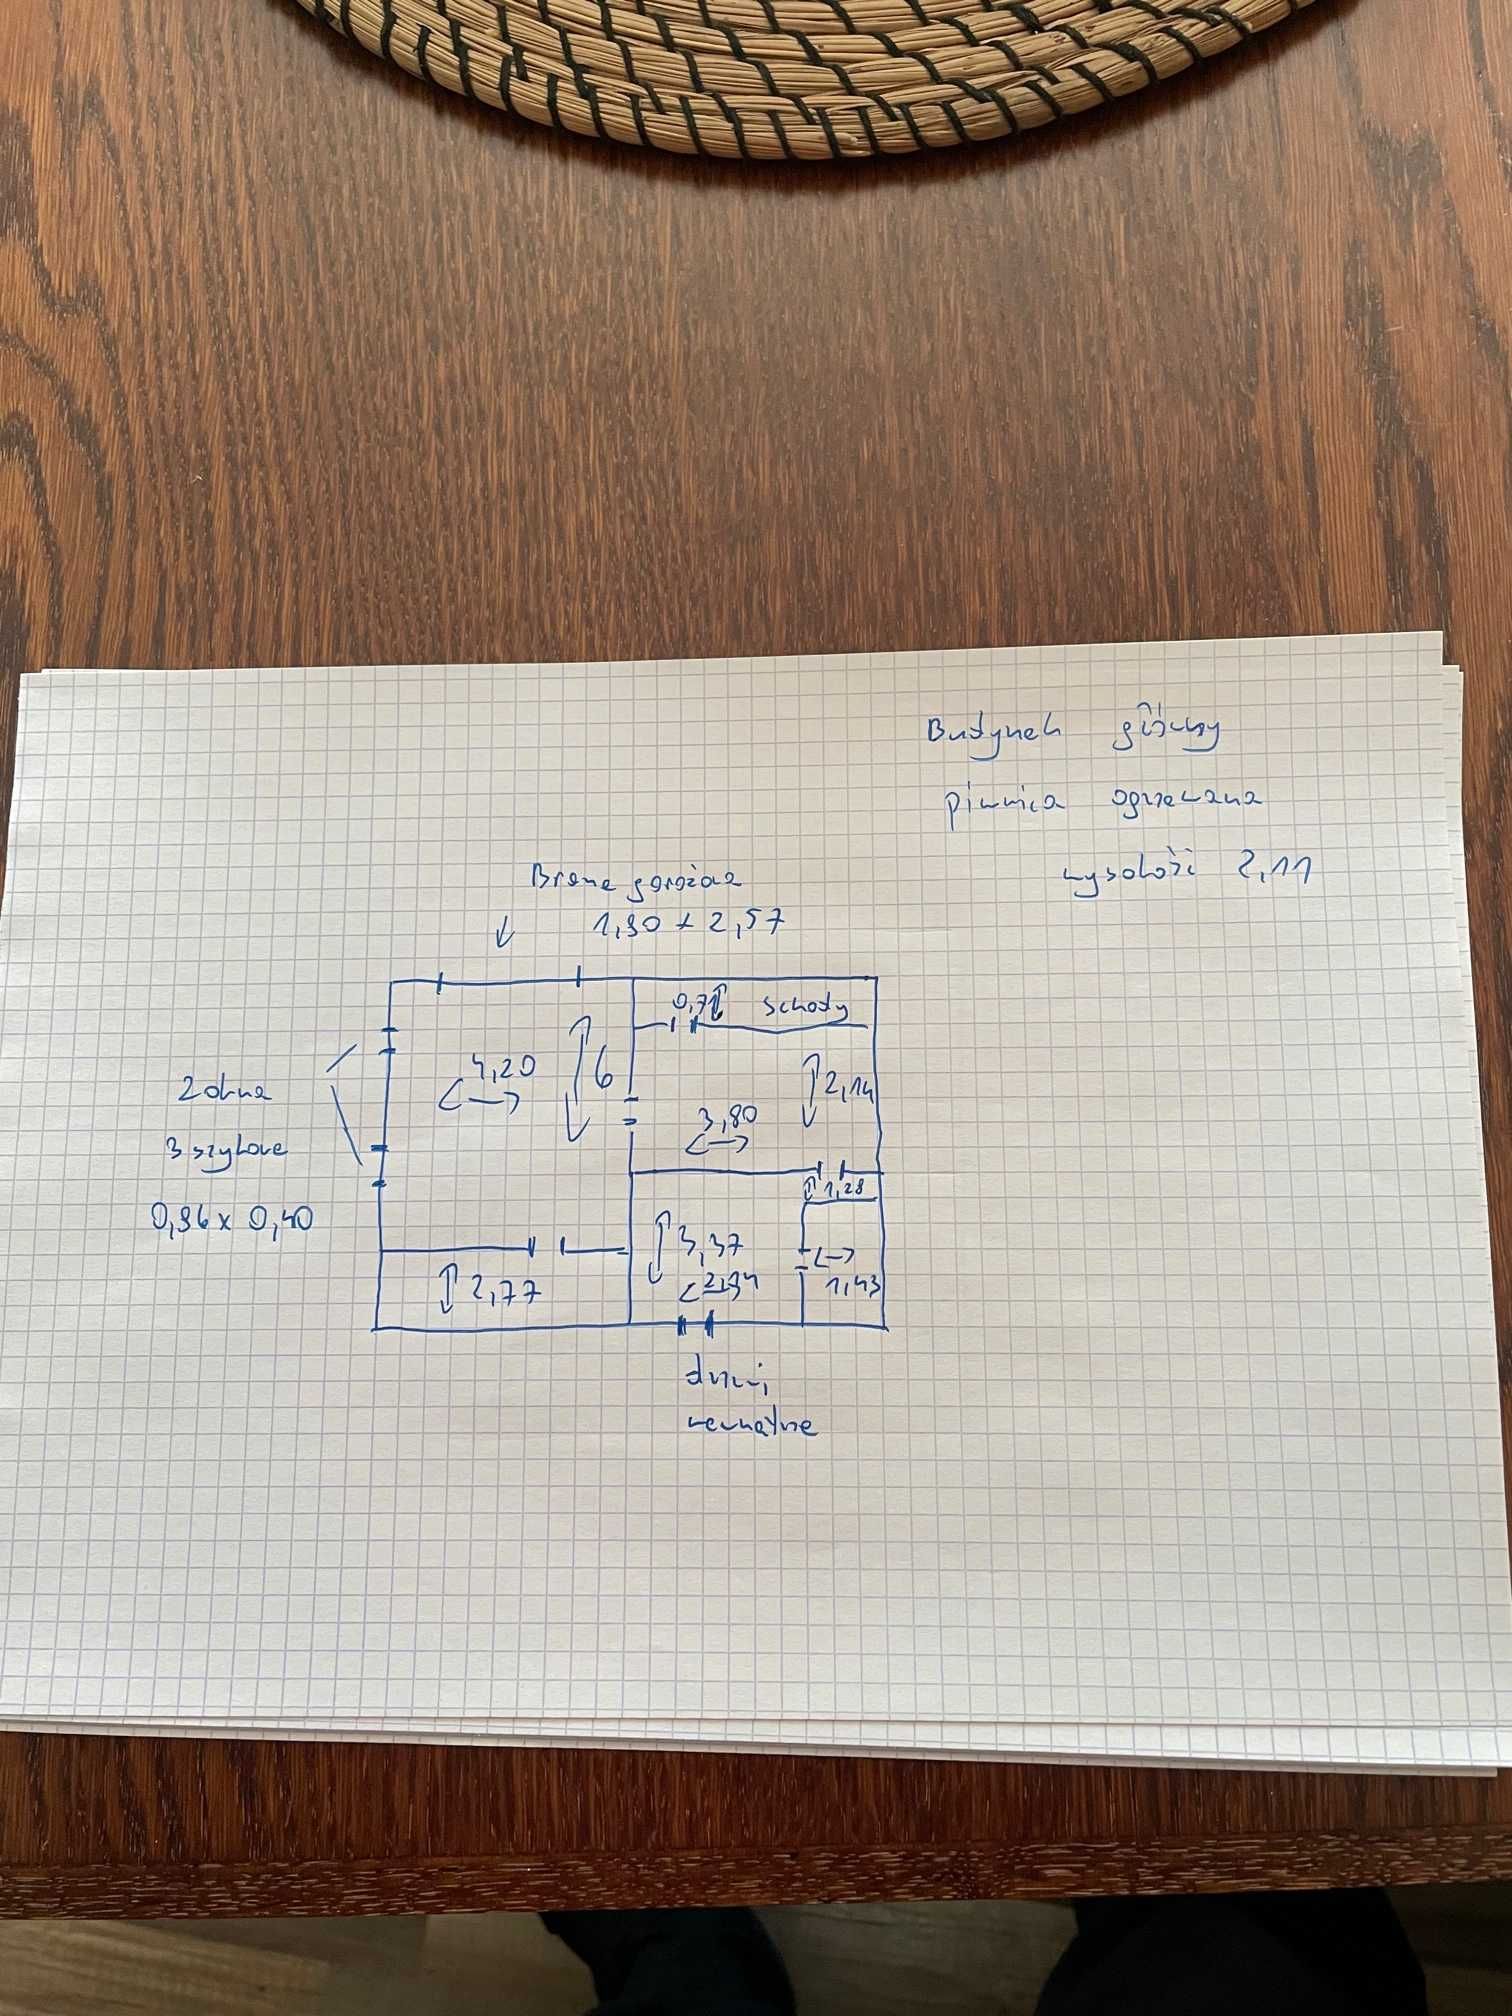 Budynek główny
piwnica ogrzewana
wysokość 2,11
Brama garażowa
1,90 x 2,57
0,71 schody
4,20
6
2,14
3,80
2 okna
3 szybowe
0,96 x 0,40
1,28
3,37
2,34
1,43
2,77
drzwi